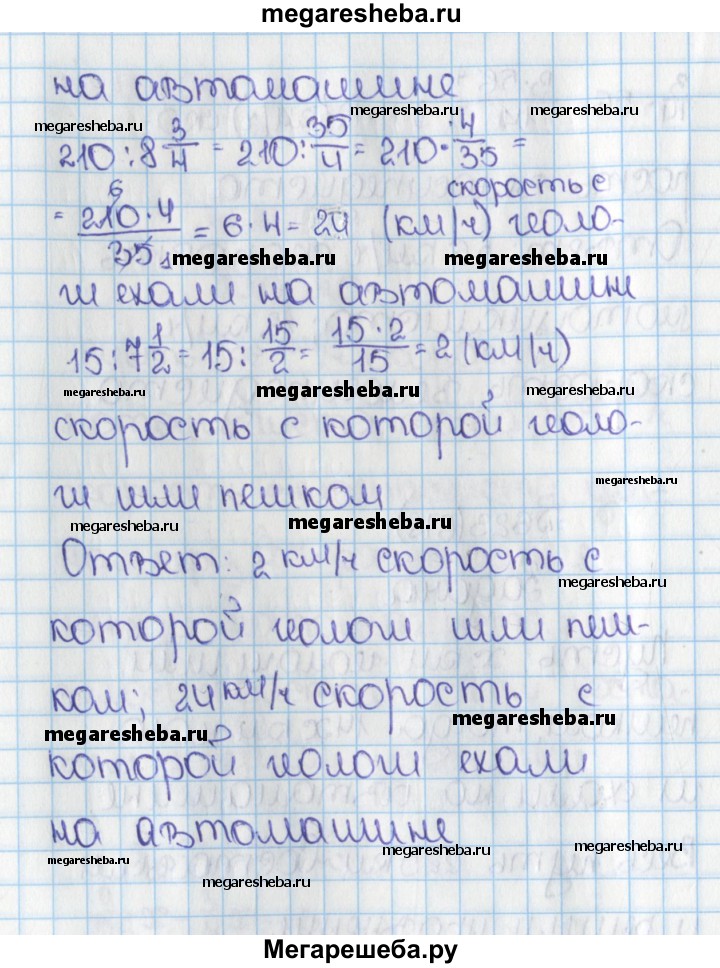 megaresheba.ru
на автомашине
megaresheba.ru megaresheba.ru megaresheba.ru
210 : 8 3/4 = 210 : 35/4 = 210 · 4/35 =
= 210 · 4 / 35 = 6 · 4 = 24 (км/ч) скорость с геоло-
megaresheba.ru megaresheba.ru
ги ехали на автомашине
15 : 7 1/2 = 15 : 15/2 = 15 · 2 / 15 = 2 (км/ч)
megaresheba.ru megaresheba.ru megaresheba.ru
скорость с которой геоло-
megaresheba.ru
ги шли пешком
megaresheba.ru megaresheba.ru
Ответ: 2 км/ч скорость с
megaresheba.ru
которой геологи шли пеш-
ком; 24 км/ч скорость с
megaresheba.ru megaresheba.ru
которой геологи ехали
на автомашине
megaresheba.ru megaresheba.ru megaresheba.ru
megaresheba.ru
Мегарешеба.ру